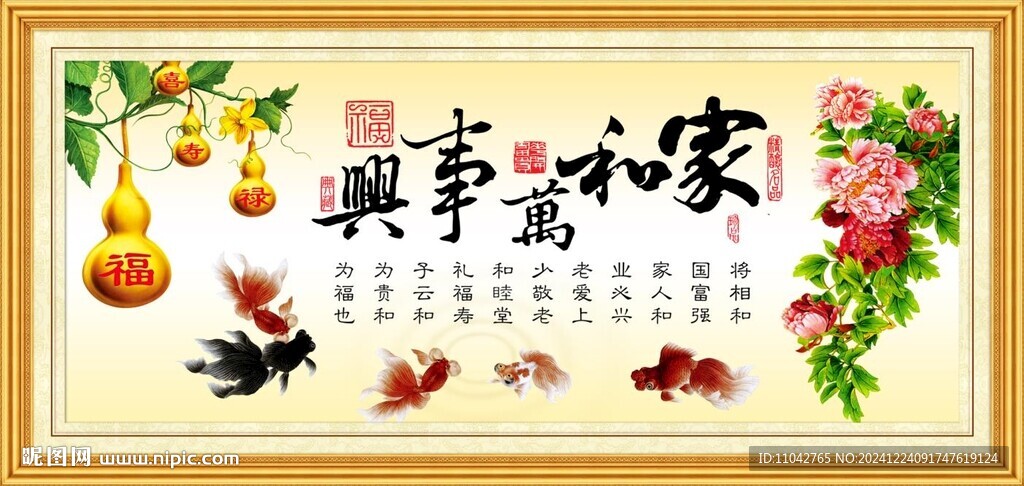 喜
寿
禄
福
福
家和萬事興
典藏
将相和
国富强
家人和
业必兴
老爱上
少敬老
和睦堂
礼福寿
子云和
为贵和
为福也
昵图网 www.nipic.com
ID:11042765 NO:20241224091747619124